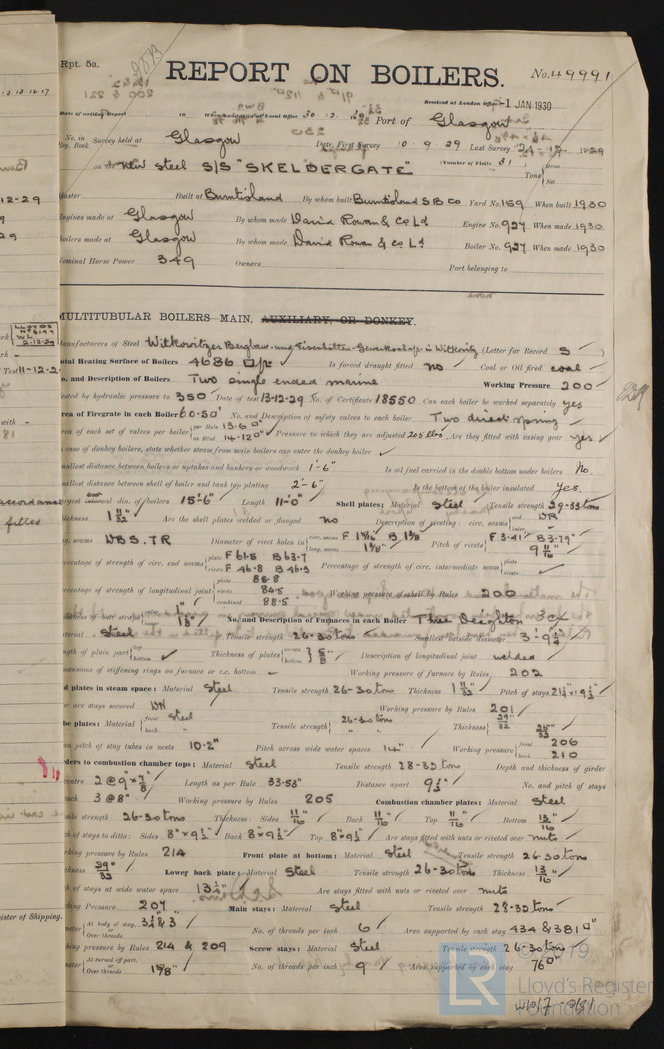 Rpt. 5a.
REPORT ON BOILERS.
No. 49991
Received at London Office -1 JAN 1930
Date of writing Report 19 When handed in at Local Office 30.12.1929 Port of Glasgow
No. in Reg. Book. Survey held at Glasgow Date, First Survey 10.9.29 Last Survey 24-12-1929
on the new steel S/S "SKELDERGATE" (Number of Visits 31) Tons Gross Net
Master Built at Burntisland By whom built Burntisland S B Co Yard No. 159 When built 1930
Engines made at Glasgow By whom made David Rowan & Co Ld Engine No. 927 When made 1930
Boilers made at Glasgow By whom made David Rowan & Co Ld Boiler No. 927 When made 1930
Nominal Horse Power 349 Owners Port belonging to
MULTITUBULAR BOILERS MAIN, AUXILIARY, OR DONKEY.
Manufacturers of Steel Witkowitzer Bergbau-und Eisenhütten-Gewerkschaft in Witkowitz (Letter for Record S)
Total Heating Surface of Boilers 4686 Is forced draught fitted no Coal or Oil fired coal
No. and Description of Boilers Two single ended marine Working Pressure 200
Tested by hydraulic pressure to 350 Date of test 13-12-29 No. of Certificate 18550 Can each boiler be worked separately yes
Area of Firegrate in each Boiler 60.50 No. and Description of safety valves to each boiler Two direct spring
Area of each set of valves per boiler per Rule 13.60 as fitted 14.12 Pressure to which they are adjusted 205 lbs Are they fitted with easing gear yes
In case of donkey boilers, state whether steam from main boilers can enter the donkey boiler
Smallest distance between boilers or uptakes and bunkers or woodwork 1'-6" Is oil fuel carried in the double bottom under boilers No.
Smallest distance between shell of boiler and tank top plating 2'-6" Is the bottom of the boiler insulated Yes.
Largest internal dia. of boilers 15'-6" Length 11'-0" Shell plates: Material Steel Tensile strength 29-33 tons
Thickness 1 11/32" Are the shell plates welded or flanged no Description of riveting: circ. seams end DR
long. seams DBS.TR Diameter of rivet holes in circ. seams F 1 5/16 B 1 3/8 long. seams 1 3/8" Pitch of rivets F 3.41" B 3.79" 9 11/16"
Percentage of strength of circ. end seams plate F 61.5 B 63.7 rivets F 46.8 B 46.3 Percentage of strength of circ. intermediate seam plate rivets
Percentage of strength of longitudinal joint plate 85.8 rivets 84.5 combined 88.5 Working pressure of shell by Rules 200
Thickness of butt straps outer 1" inner 1 1/8" No. and Description of Furnaces in each Boiler Three Deighton 3 CF
Material Steel Tensile strength 26-30 tons Smallest outside diameter 3'-9 1/4"
Length of plain part top bottom Thickness of plates crown bottom 5/8" Description of longitudinal joint welded
Dimensions of stiffening rings on furnace or c.c. bottom Working pressure of furnace by Rules 202
End plates in steam space: Material Steel Tensile strength 26-30 tons Thickness 1 11/32" Pitch of stays 21 1/4" x 19 1/2"
How are stays secured DN Working pressure by Rules 201
Tube plates: Material front Steel back " Tensile strength 26-30 tons " " Thickness 29/32" 25/32"
Mean pitch of stay tubes in nests 10.2" Pitch across wide water spaces 14" Working pressure front 206 back 210
Girders to combustion chamber tops: Material Steel Tensile strength 28-32 tons Depth and thickness of girder
at centre 2 @ 9" x 7/8" Length as per Rule 33.53" Distance apart 9 1/2" No. and pitch of stays
in each 3 @ 8" Working pressure by Rules 205 Combustion chamber plates: Material Steel
Tensile strength 26-30 tons Thickness: Sides 11/16" Back 11/16" Top 11/16" Bottom 13/16"
Pitch of stays to ditto: Sides 8" x 9 1/2" Back 8" x 9 1/2" Top 8" x 9 1/2" Are stays fitted with nuts or riveted over nuts
Working pressure by Rules 214 Front plate at bottom: Material Steel Tensile strength 26-30 tons
Thickness 29/32" Lower back plate: Material Steel Tensile strength 26-30 tons Thickness 13/16"
Pitch of stays at wide water space 13 1/2" Are stays fitted with nuts or riveted over nuts
Working Pressure 207 Main stays: Material Steel Tensile strength 28-32 tons
Diameter At body of stay, Over threads 3 1/4" & 3" No. of threads per inch 6 Area supported by each stay 434 & 381
Working pressure by Rules 214 & 209 Screw stays: Material Steel Tensile strength 26-30 tons
Diameter At turned off part, Over threads 1 5/8" No. of threads per inch 9 Area supported by each stay 76
© 2019
LR
Lloyd's Register
Foundation